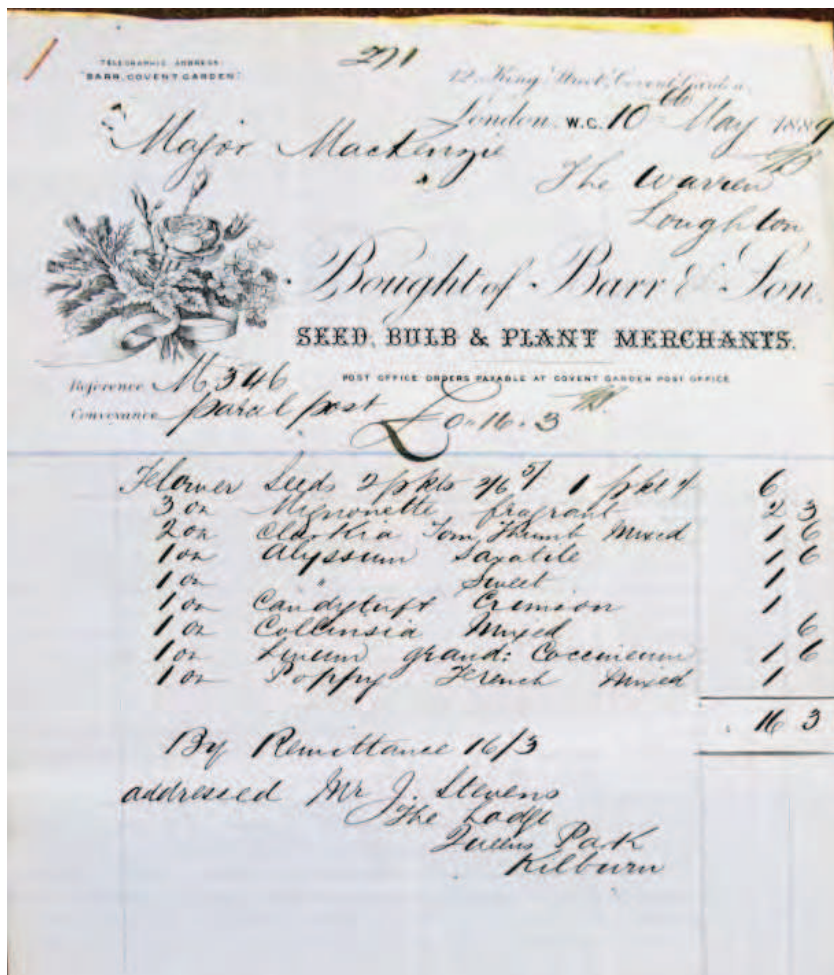 TELEGRAPHIC ADDRESS
"BARR, COVENT GARDEN."
271
12, King Street, Covent Garden,
London, W.C. 10th May 1889
Major Mackenzie
The Warren
Loughton
Bought of Barr & Son.
SEED, BULB & PLANT MERCHANTS.
POST OFFICE ORDERS PAYABLE AT COVENT GARDEN POST OFFICE
Reference M 346
Conveyance parcel post
£0-16-3
Flower Seeds 2 pkts 2/6 5/ 1 pkt 1/ 6
3 oz Mignonette fragrant 2 3
2 oz Clarkia Tom Thumb Mixed 1 6
1 oz Alyssum Saxatile 1 6
1 oz " Sweet 1
1 oz Candytuft Crimson 1
1 oz Collinsia Mixed 6
1 oz Linum grand: Coccineum 1 6
1 oz Poppy French Mixed 1
16 3
By Remittance 16/3
addressed Mr J. Stevens
The Lodge
Queens Park
Kilburn